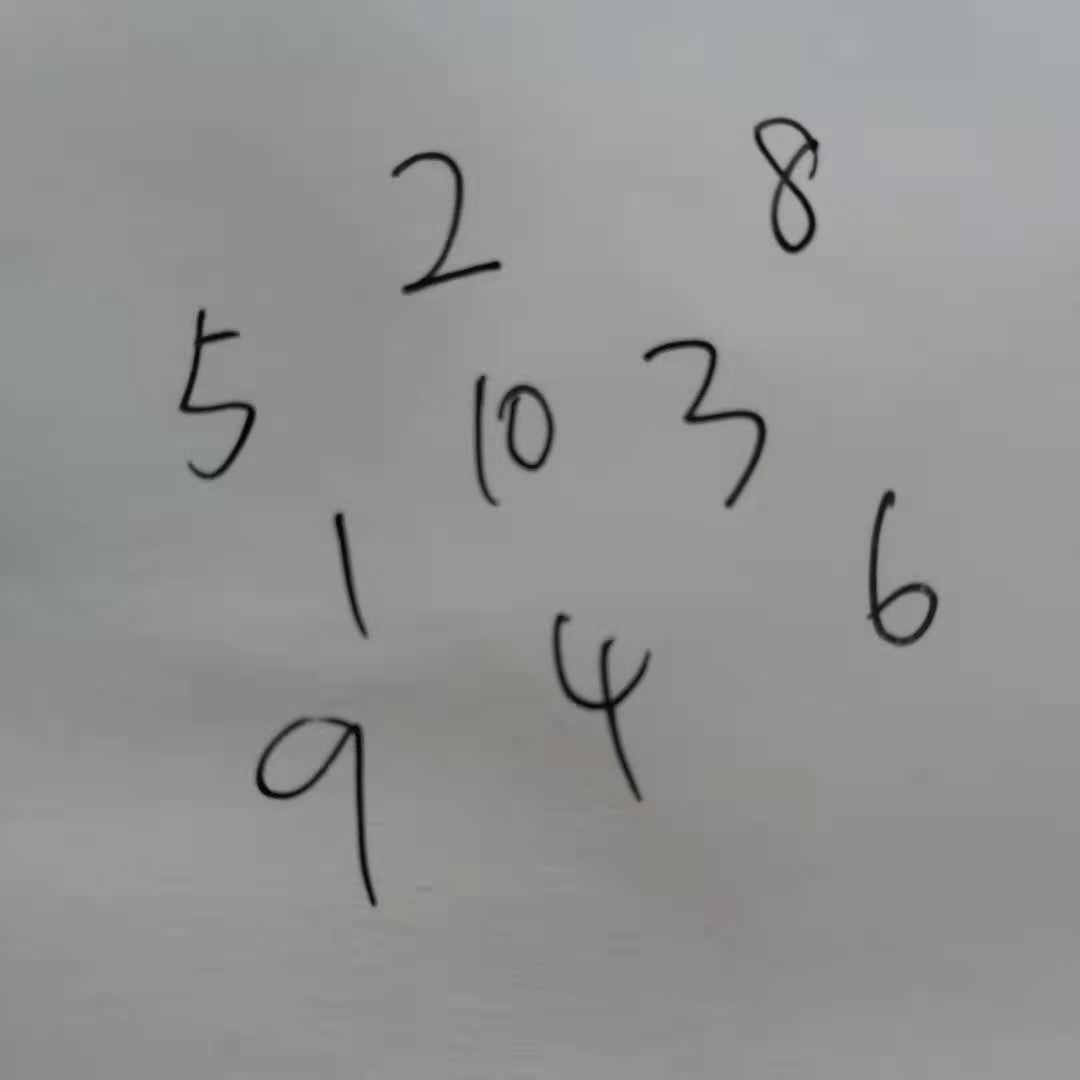 2 8
5 10 3
1 6
4
9